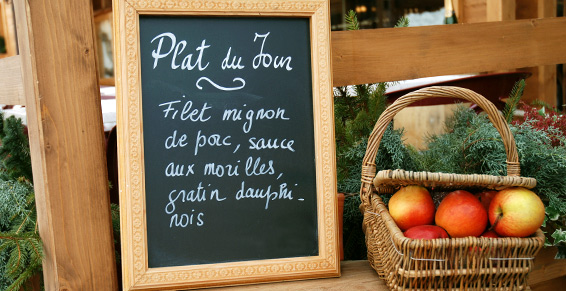 Plat du Jour
Filet mignon
de porc, sauce
aux morilles,
gratin dauphi-
nois